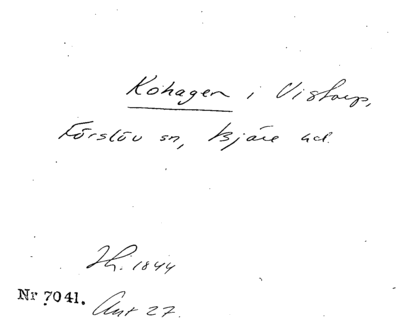 Kohagen i Vistorp,
Förslöv sn, Bjäre hd.
Jh. 1844
Nr 7041.
Ant 27.